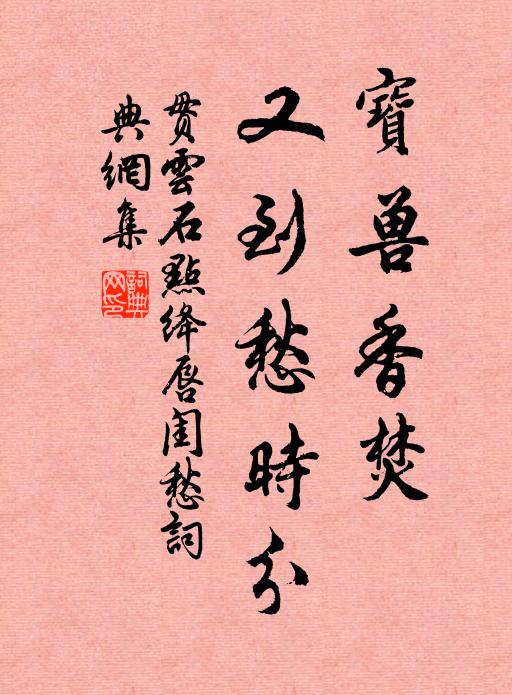 寶兽香焚
又到愁時分
贯雲石點绛唇闺愁詞
典網集
詞典
网印